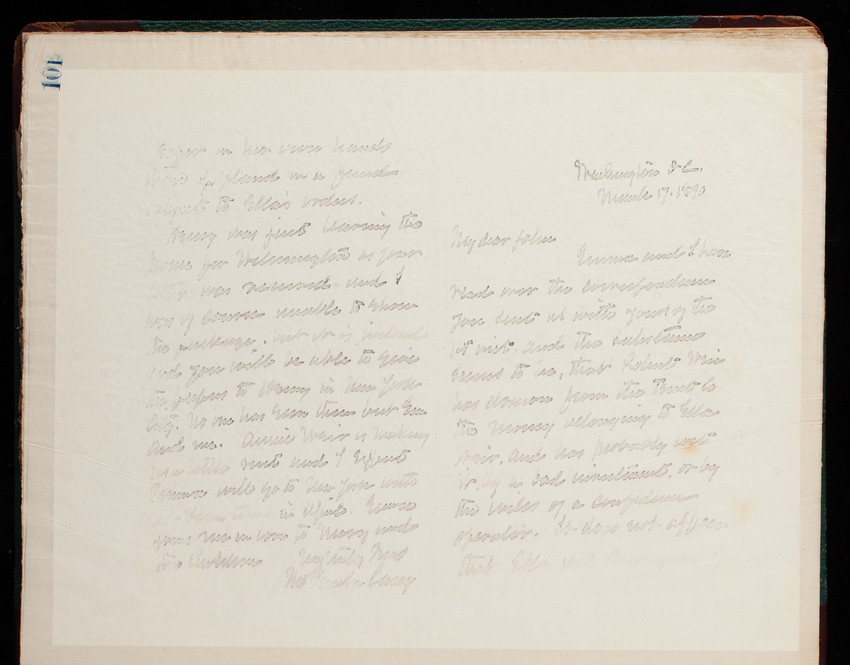 101
paper in her own hands
placed in a fund
subject to Ella's orders.
Harry was just leaving the
house for Wilmington as your
letter was received and I
was of course unable to show
the package. but it is
and you will be able to give
the papers to Harry in New York
City. No one has seen them but Em
and me. Annie Weir is making
us a little visit and I expect
Emma will go to New York with
in April. Emma
joins me in love to Mary and
the children Very truly Yours
Thos Lincoln Casey
Washington D.C.
March 17. 1890
My dear John
Emma and I have
read over the correspondence
you sent us with yours of the
inst. and the substance
seems to be, that Robert Weir
has drawn from the Trust Co
the money belonging to Ella
Weir, and has probably lost
it, by a bad investment, or by
the wiles of a confidence
operator. It does not appear
that Ella